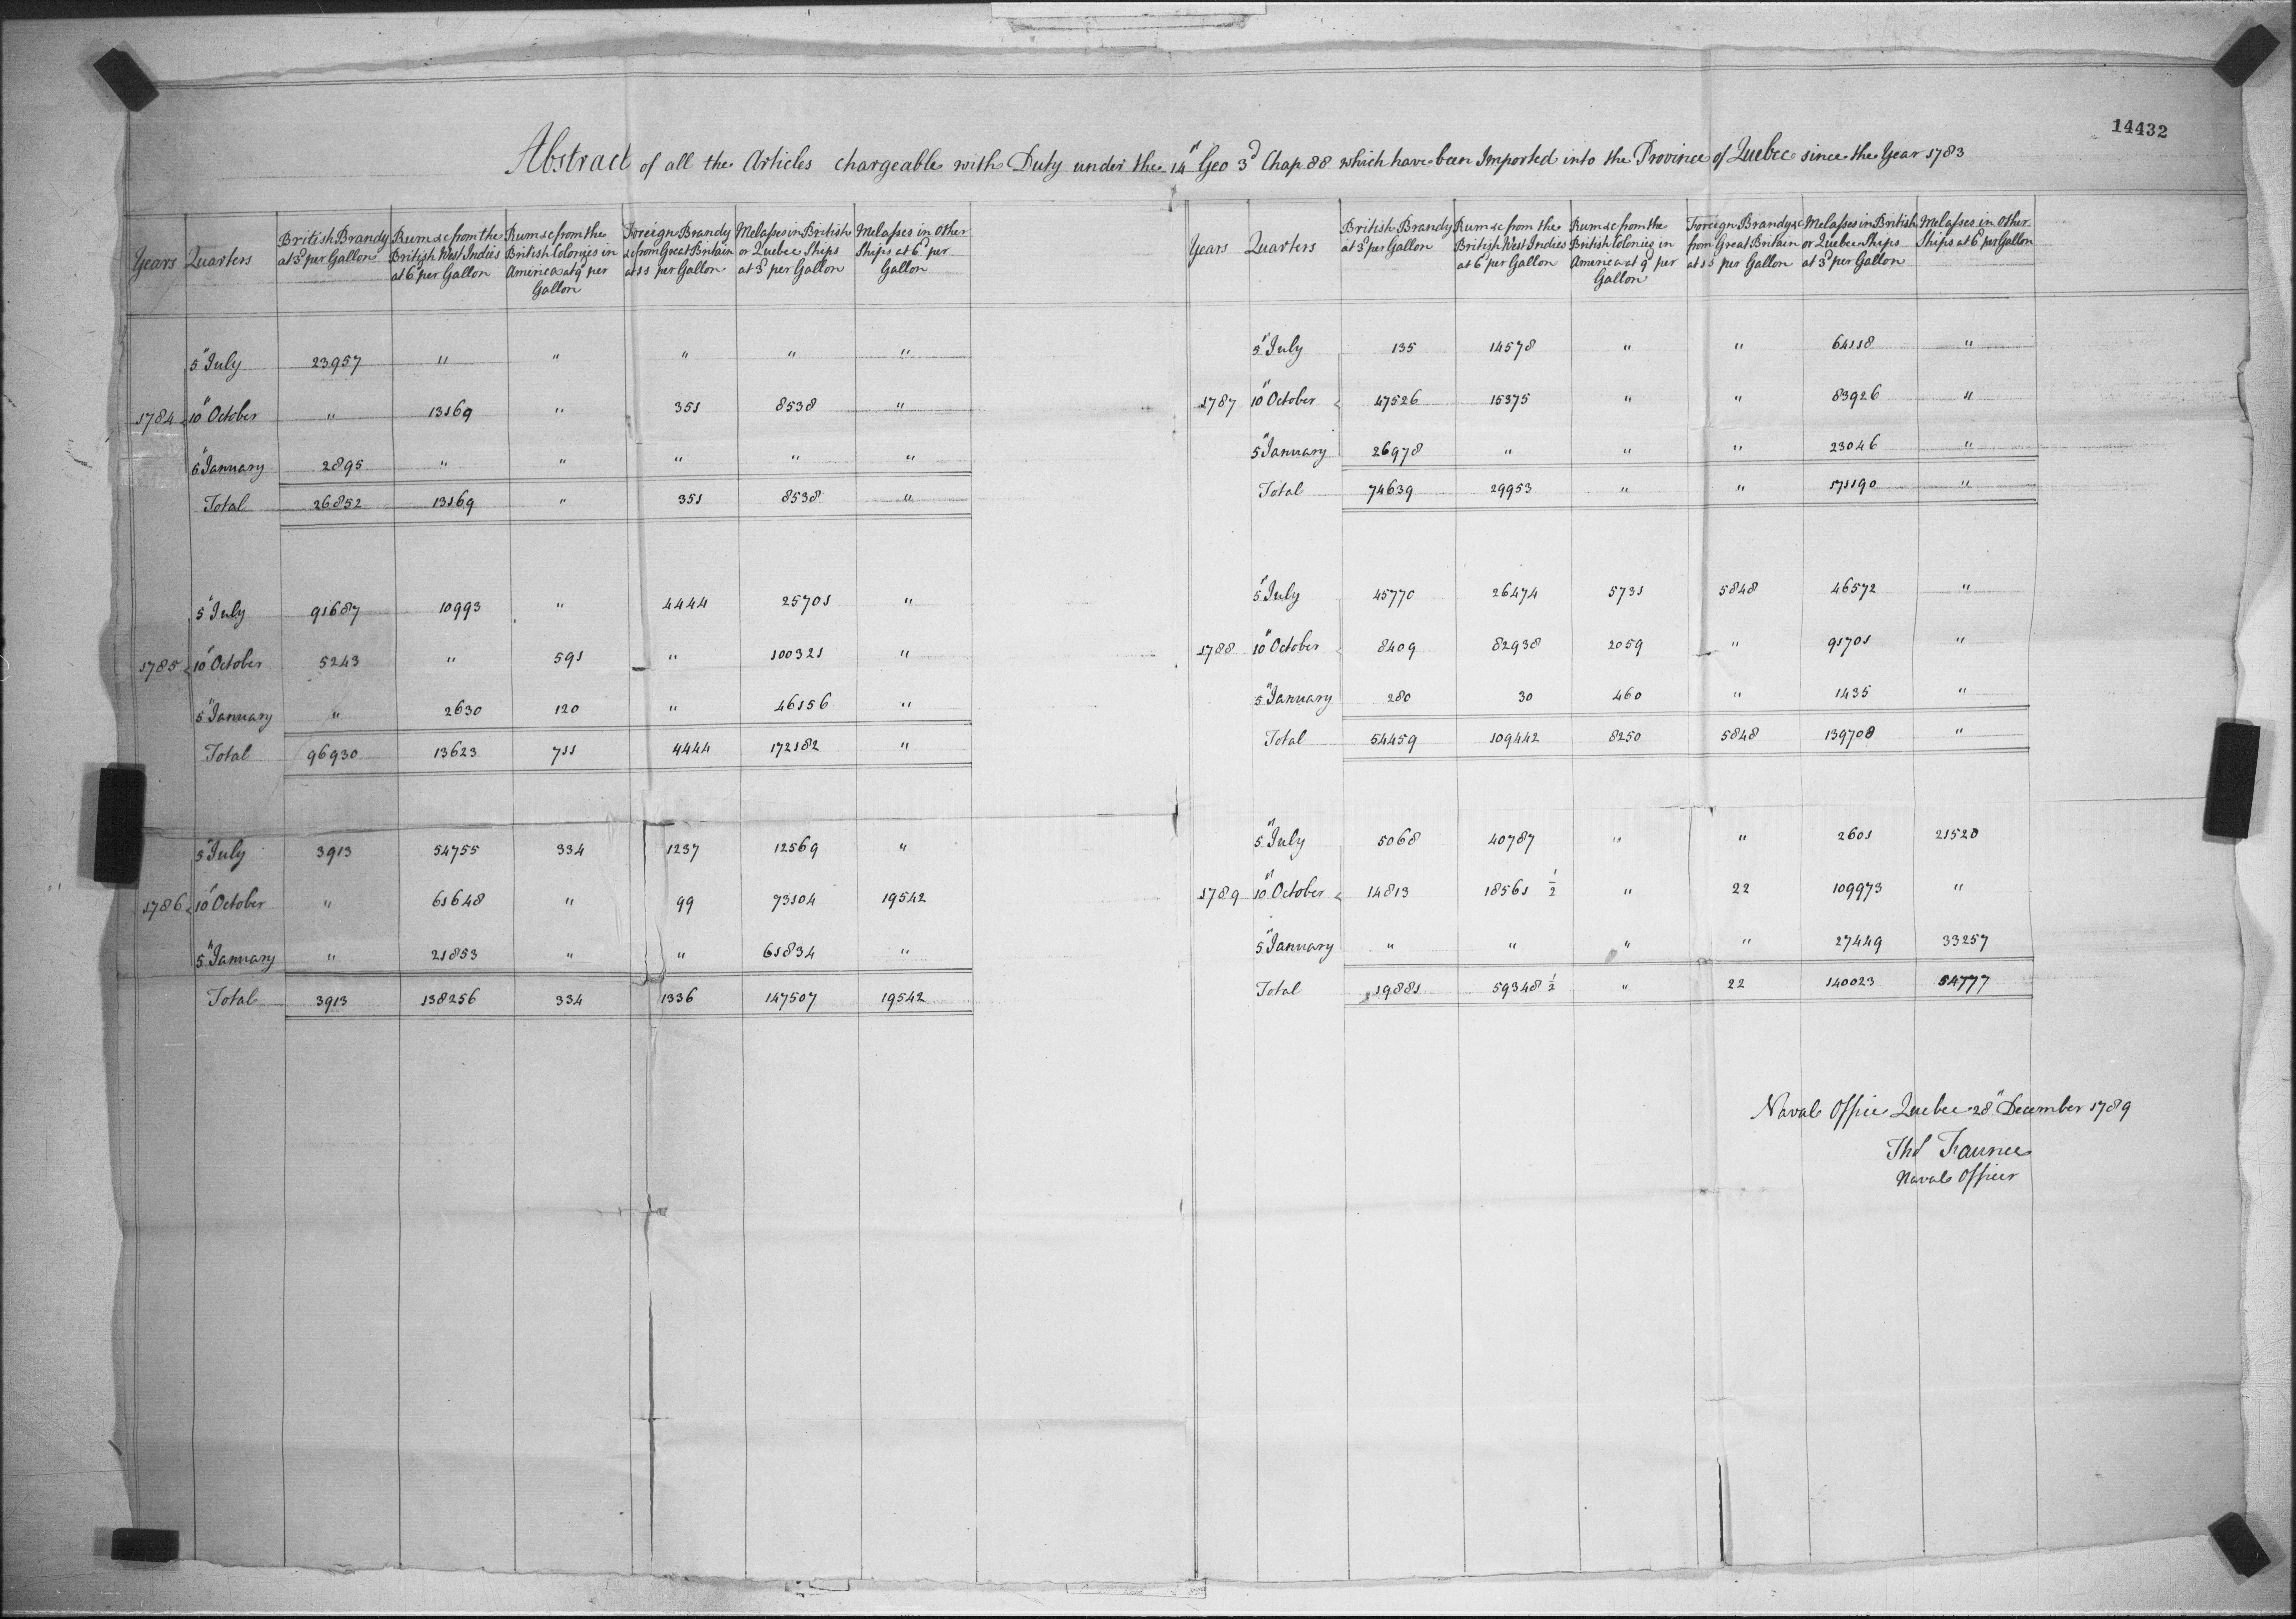 14432
Abstract of all the Articles chargeable with Duty under the 14" Geo 3d Chap 88 which have been Imported into the Province of Quebec since the Year 1783
Years Quarters British Brandy at 3d per Gallon Rum &c from the British West Indies at 6d per Gallon Rum &c from the British Colonies in America at 9d per Gallon Foreign Brandy &c from Great Britain at 1s per Gallon Melasses in British or Quebec Ships at 3d per Gallon Melasses in Other Ships at 6d per Gallon
5" July 23957 " " " " "
1784 10" October " 13169 " 351 8538 "
6" January 2895 " " " " "
Total 26852 13169 " 351 8538 "
5" July 91687 10993 " 4444 25701 "
1785 10" October 5243 " 591 " 100321 "
5" January " 2630 120 " 46156 "
Total 96930 13623 711 4444 172182 "
5" July 3913 54755 334 1237 12569 "
1786 10" October " 61648 " 99 73104 19542
5" January " 21853 " " 61834 "
Total 3913 138256 334 1336 147507 19542
Years Quarters British Brandy at 3d per Gallon Rum &c from the British West Indies at 6d per Gallon Rum &c from the British Colonies in America at 9d per Gallon Foreign Brandy &c from Great Britain at 1s per Gallon Melasses in British or Quebec Ships at 3d per Gallon Melasses in Other Ships at 6d per Gallon
5" July 135 14578 " " 64118 "
1787 10" October 47526 15375 " " 83926 "
5" January 26978 " " " 23046 "
Total 74639 29953 " " 171190 "
5" July 45770 26474 5731 5848 46572 "
1788 10" October 8409 82938 2059 " 91701 "
5" January 280 30 460 " 1435 "
Total 54459 109442 8250 5848 139708 "
5" July 5068 40787 " " 2601 21520
1789 10" October 14813 18561 1/2 " 22 109973 "
5" January " " " " 27449 33257
Total 19881 59348 1/2 " 22 140023 54777
Naval Office Quebec 28" December 1789
Thos Faunce
Naval Officer